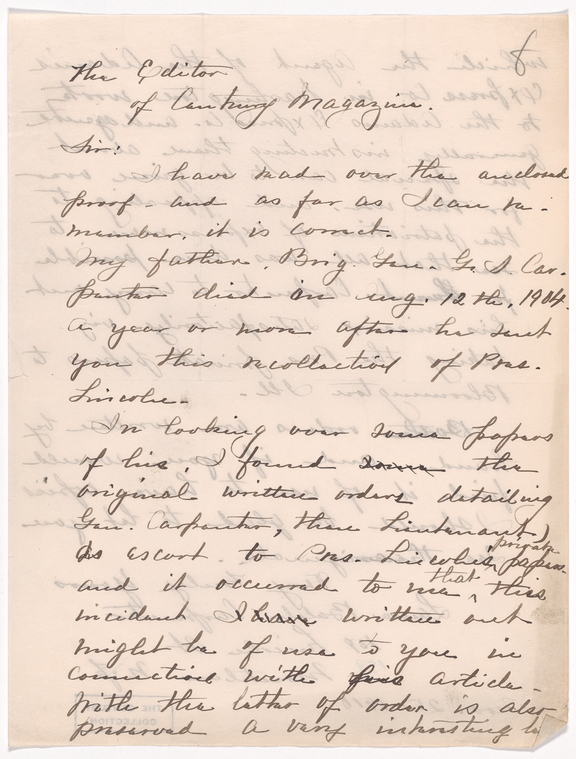 8
The Editor
of Century Magazine.
Sir:
I have read over the enclosed
proof - and as far as I can re-
member, it is correct.
My father, Brig. Gen. G. S. Car-
penter died in Aug. 12th, 1904.
a year or more after he sent
you this recollection of Pres.
Lincoln.
In looking over some papers
of his, I found some the
original written orders detailing
Gen. Carpenter, then Lieutenant)
as escort to Pres. Lincoln's private papers.
and it occurred to me that this
incident I have written out
might be of use to you in
connection with his article.
With the letter of order is also
preserved a very interesting